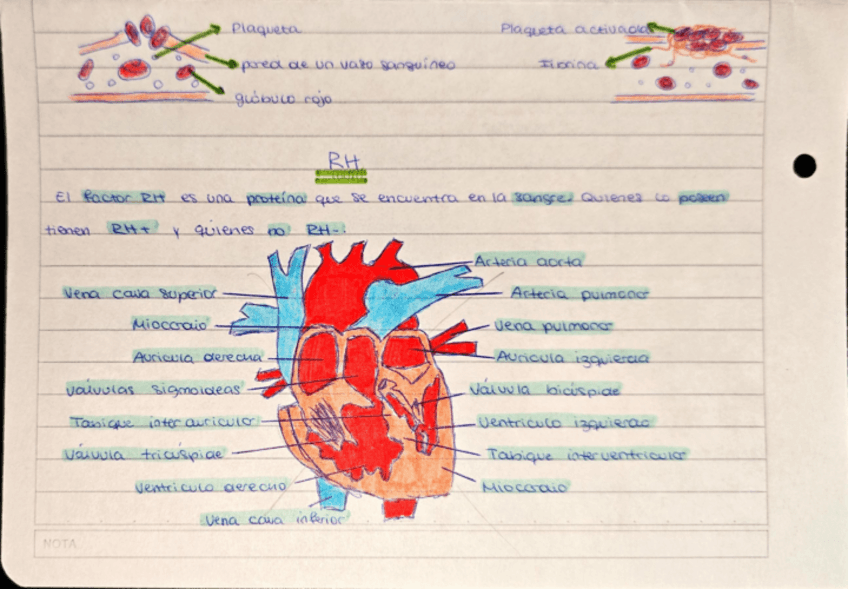 Plaqueta
Plaqueta activada
pared de un vaso sanguíneo
Fibrina
glóbulo rojo
RH
El factor RH es una proteína que se encuentra en la sangre. Quienes lo poseen
tienen RH+ y quienes no RH-.
Arteria aorta
Vena cava superior
Arteria pulmonar
Miocardio
Vena pulmonar
Aurícula derecha
Aurícula izquierda
Válvulas sigmoideas
Válvula bicúspide
Tabique interauriculo
Ventriculo izquierdo
Válvula tricúspide
Tabique interventriculo
Ventriculo derecho
Miocardio
Vena cava inferior
NOTA